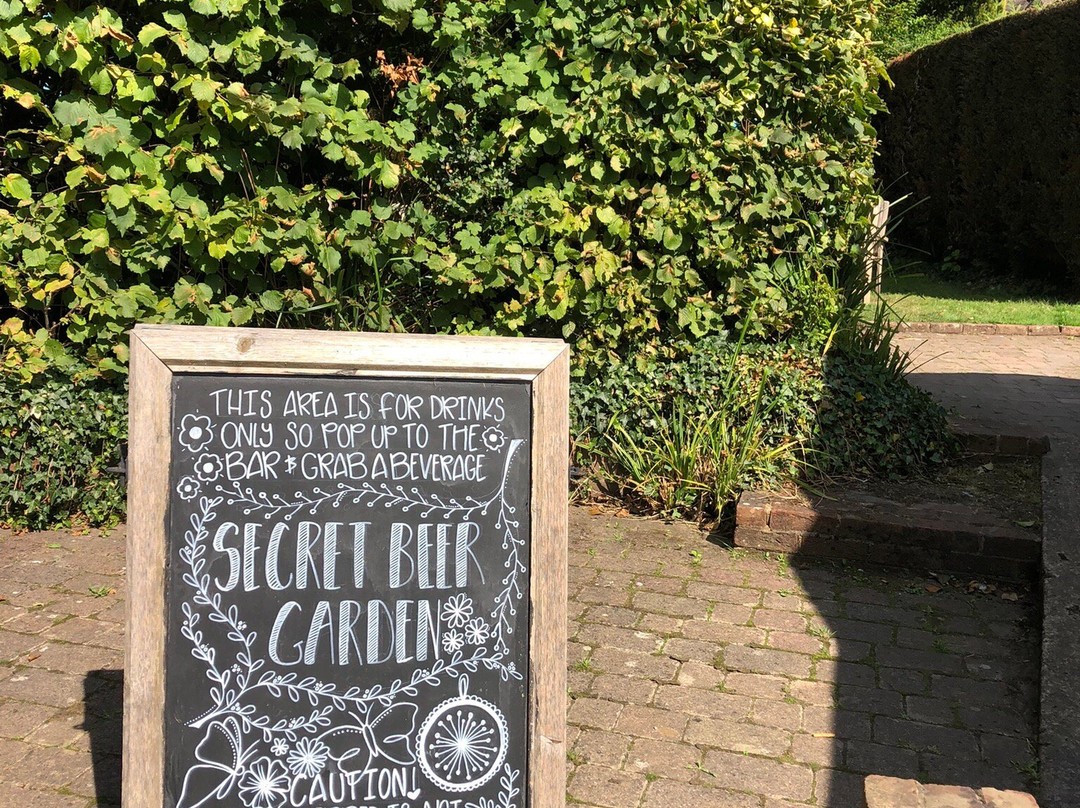 THIS AREA IS FOR DRINKS
ONLY SO POP UP TO THE
BAR & GRAB A BEVERAGE
SECRET BEER
GARDEN
CAUTION!
IS NOT